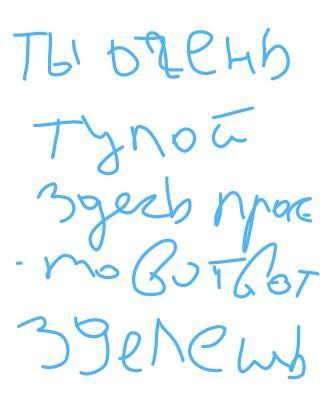 ты очень
тупой
здесь прос
то вот вот
зделешь